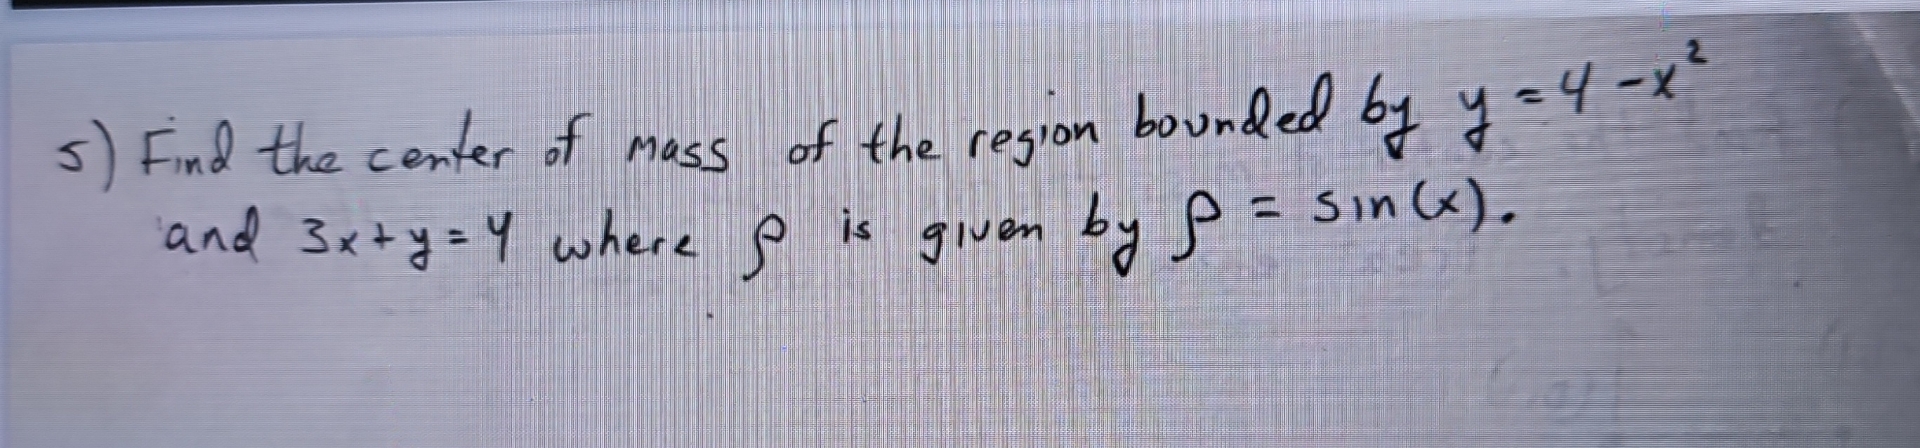 5) Find the center of mass of the region bounded by y = 4 - x²
and 3x + y = 4 where ρ is given by ρ = sin(x).